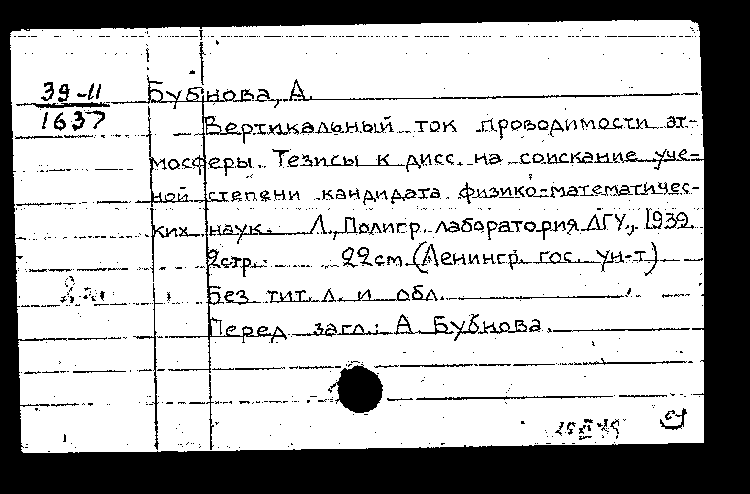 39-11
1637
Бубнова, А.
Вертикальный ток проводимости ат-
мосферы. Тезисы к дисс. на соискание уче-
ной степени кандидата физико-математичес-
ких наук. Л., Полигр. лаборатория ЛГУ, 1939.
2стр. 22см. (Ленингр. гос. ун-т)
Без тит. л. и обл.
Перед загл.: А. Бубнова.